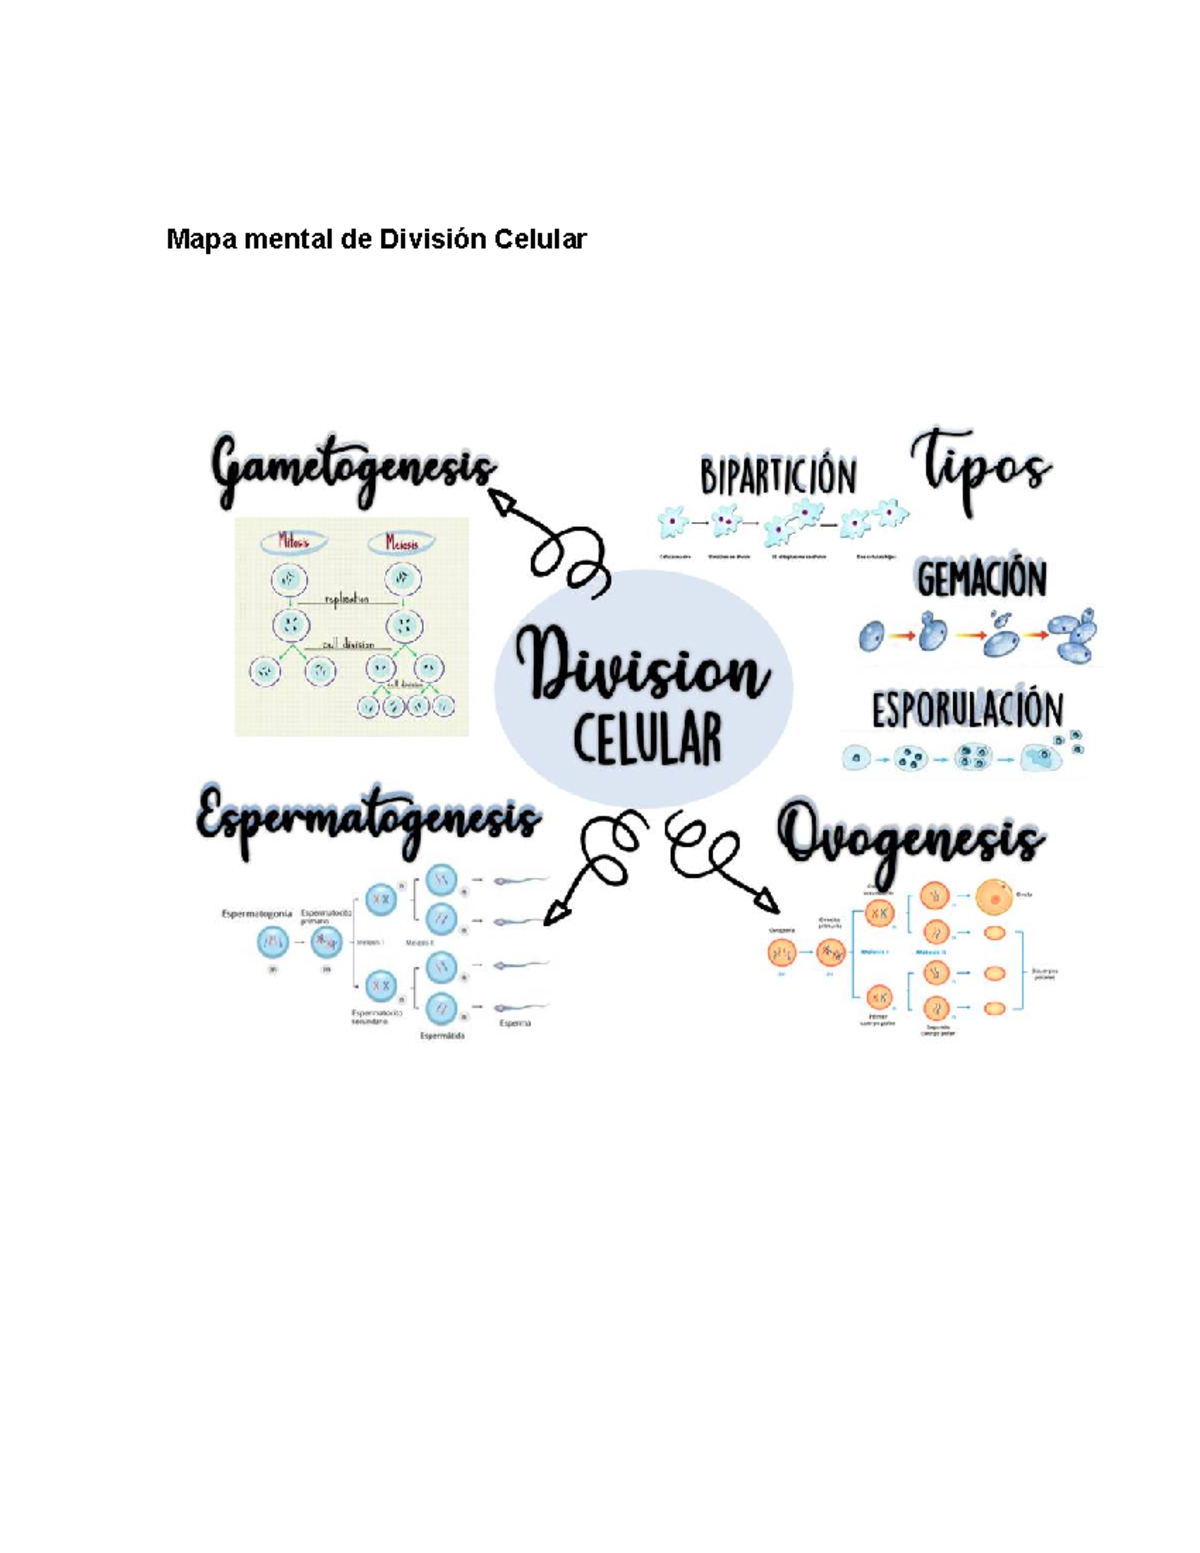 Mapa mental de División Celular
Gametogenesis
Mitosis
Meiosis
replication
cell division
cell division
BIPARTICIÓN
Tipos
GEMACIÓN
ESPORULACIÓN
Division
CELULAR
Espermatogenesis
Espermatogonia
Espermatocito
primario
Meiosis I
Meiosis II
Espermatocito
secundario
Espermátida
Esperma
Ovogenesis
Meiosis I
Meiosis II
Primer
cuerpo polar
Segundo
cuerpo polar